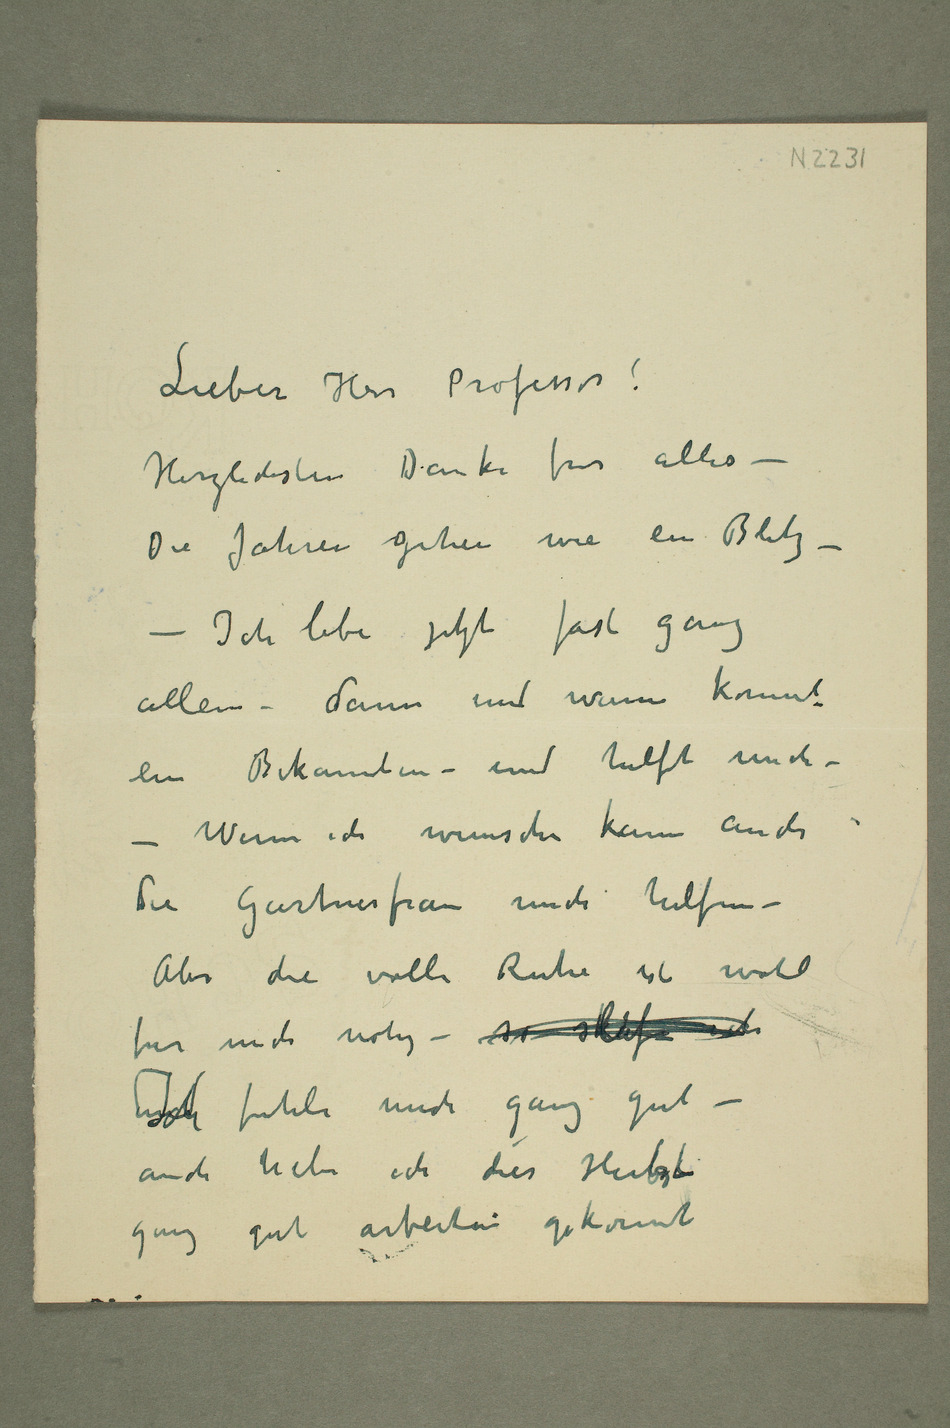 N 2231
Lieber Herr Professor!
Herzlichsten Danke fur alles —
Die Jahren gehen wie ein Blitz —
— Ich lebe jetzt fast ganz
allein – dann und wann kommt
ein Bekannten – und hilft mich –
— Wenn ich wunsche kann auch
die Gartnerfrau mich helfen –
Aber die volle Ruhe ist wohl
fur mich notig – so schlafe ich
Ich fuhle mich ganz gut –
auch habe ich dies Herbst
ganz gut arbeiten gekonnt